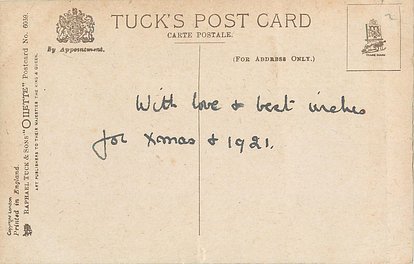 TUCK'S POST CARD
CARTE POSTALE.
By Appointment.
(FOR ADDRESS ONLY.)
With love & best wishes
for Xmas & 1921.
RAPHAEL TUCK & SONS' "OILETTE" Postcard No. 609.
ART PUBLISHERS TO THEIR MAJESTIES THE KING & QUEEN.
Copyright London.
Printed in England.